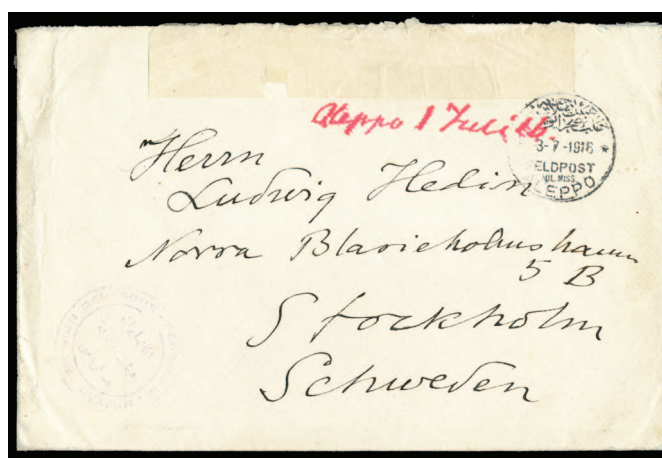 Aleppo 1 Juli 16.
3-7-1916 *
FELDPOST
MIL.MISS.
ALEPPO
Herrn
Ludwig Hedin
Norra Blasieholmshamn
5 B
Stockholm
Schweden